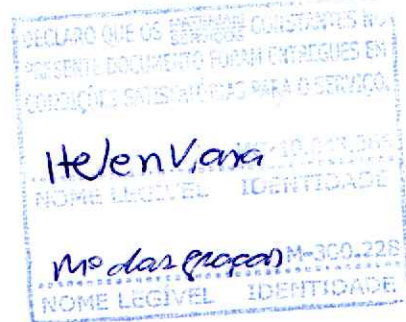 DECLARO QUE OS MATERIAIS CONSTANTES NO
PRESENTE DOCUMENTO FORAM ENTREGUES EM
CONDIÇÕES SATISFATÓRIAS PARA O SERVIÇO.
Helen Viana
NOME LEGÍVEL IDENTIDADE
Mª das graças M-300.228
NOME LEGÍVEL IDENTIDADE